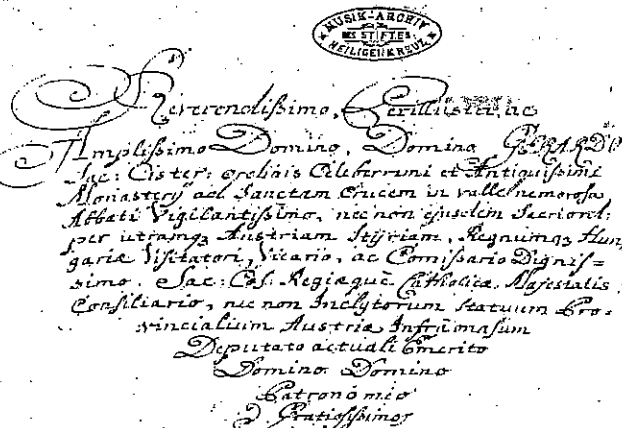 MUSIK-ARCHIV
DES STIFTES
HEILIGENKREUZ
Reverendissimo, Perillustri, ac
Amplissimo Domino, Domino GERARDO
Sac: Cister: ordinis Celeberrimi et Antiquissimi
Monasterÿ ad Sanctam Crucem in valle nemorosa
Abbati Vigilantissimo, nec non ejusdem Sacri ord:
per utramq3 Austriam Stÿriam, Regnumq3 Hun,
gariæ Visitatori, Vicario, ac Comissario Dignis=
simo. Sac: Cæs: Regiæque Catholicæ Majestatis
Consiliario, nec non Inclÿtorum Statuum Pro=
vincialium Austriæ Infra
Deputato actuali Emerito
Domino Domino
Patrono meo
Gratiosissimo